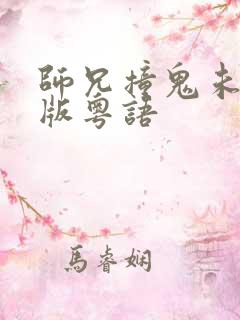 師兄撞鬼未
版粵語
馬睿嫻